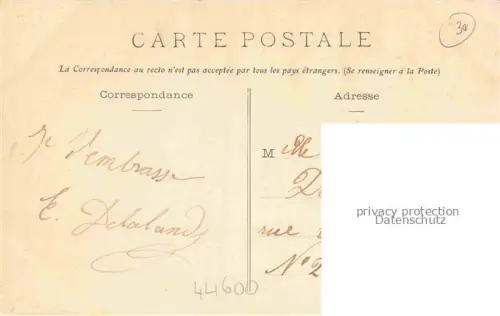 30
CARTE POSTALE
La Correspondance au recto n'est pas acceptée par tous les pays étrangers. (Se renseigner à la Poste)
Correspondance
Adresse
Je t'embrasse
E. Delalande
M lle
D
rue
No 2
privacy protection
Datenschutz
44600